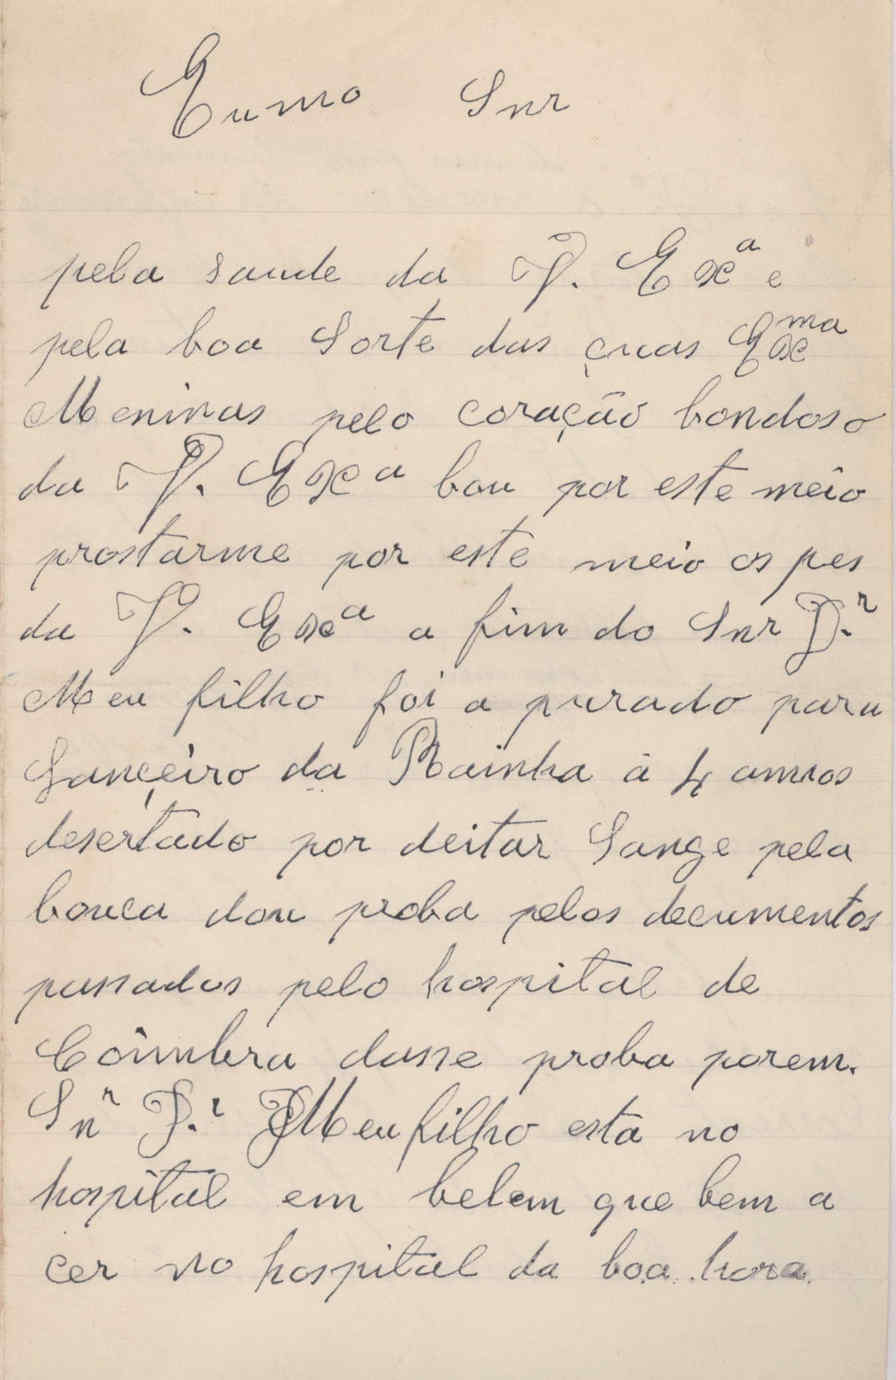 Eumo Snr
pela saude da V. Exª e
pela boa Sorte das çuas Exma
Meninas pelo coração bondoso
da V. Exª bou por este meio
prostarme por este meio os pes
da V. Exª a fim do Snr D.r
Meu filho foi a purado para
Lançeiro da Rainha à 4 annos
desertado por deitar Sange pela
bouca dou proba pelos decumentos
passados pelo hospital de
Coimbra dasse proba porem.
Snr D.r Meu filho esta no
hospital em belem que bem a
cer no hospital da boa hora